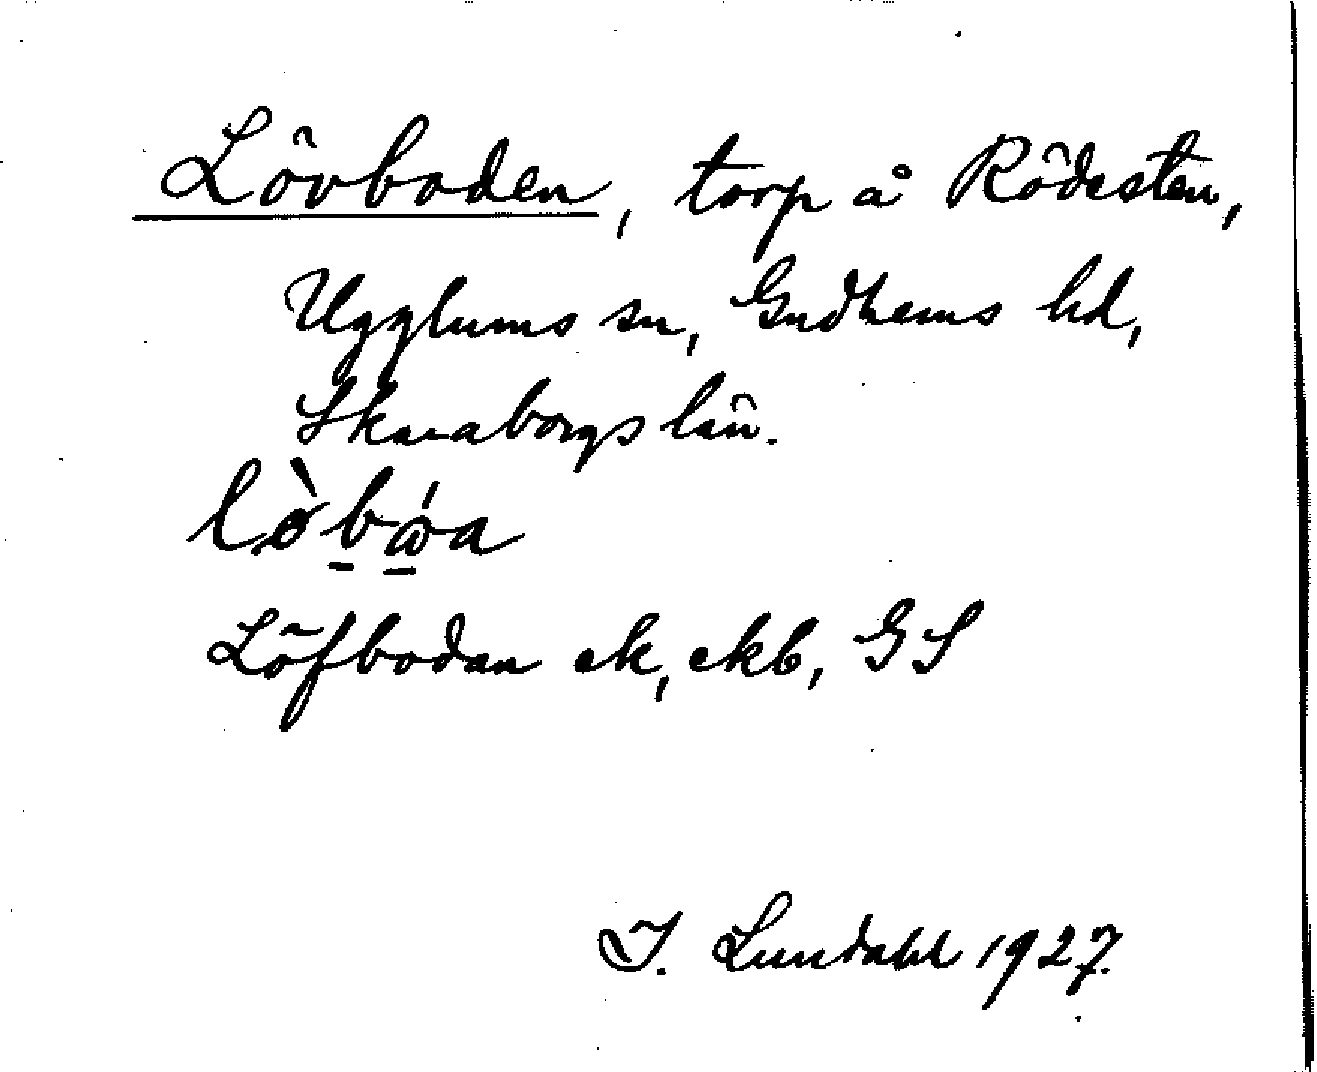 Lövboden, torp å Rödesten,
Ugglums sn, Gudhems hd,
Skaraborgs län.
lòbǿa
Löfbodan ek, ekb, GS
I. Lundahl 1927.